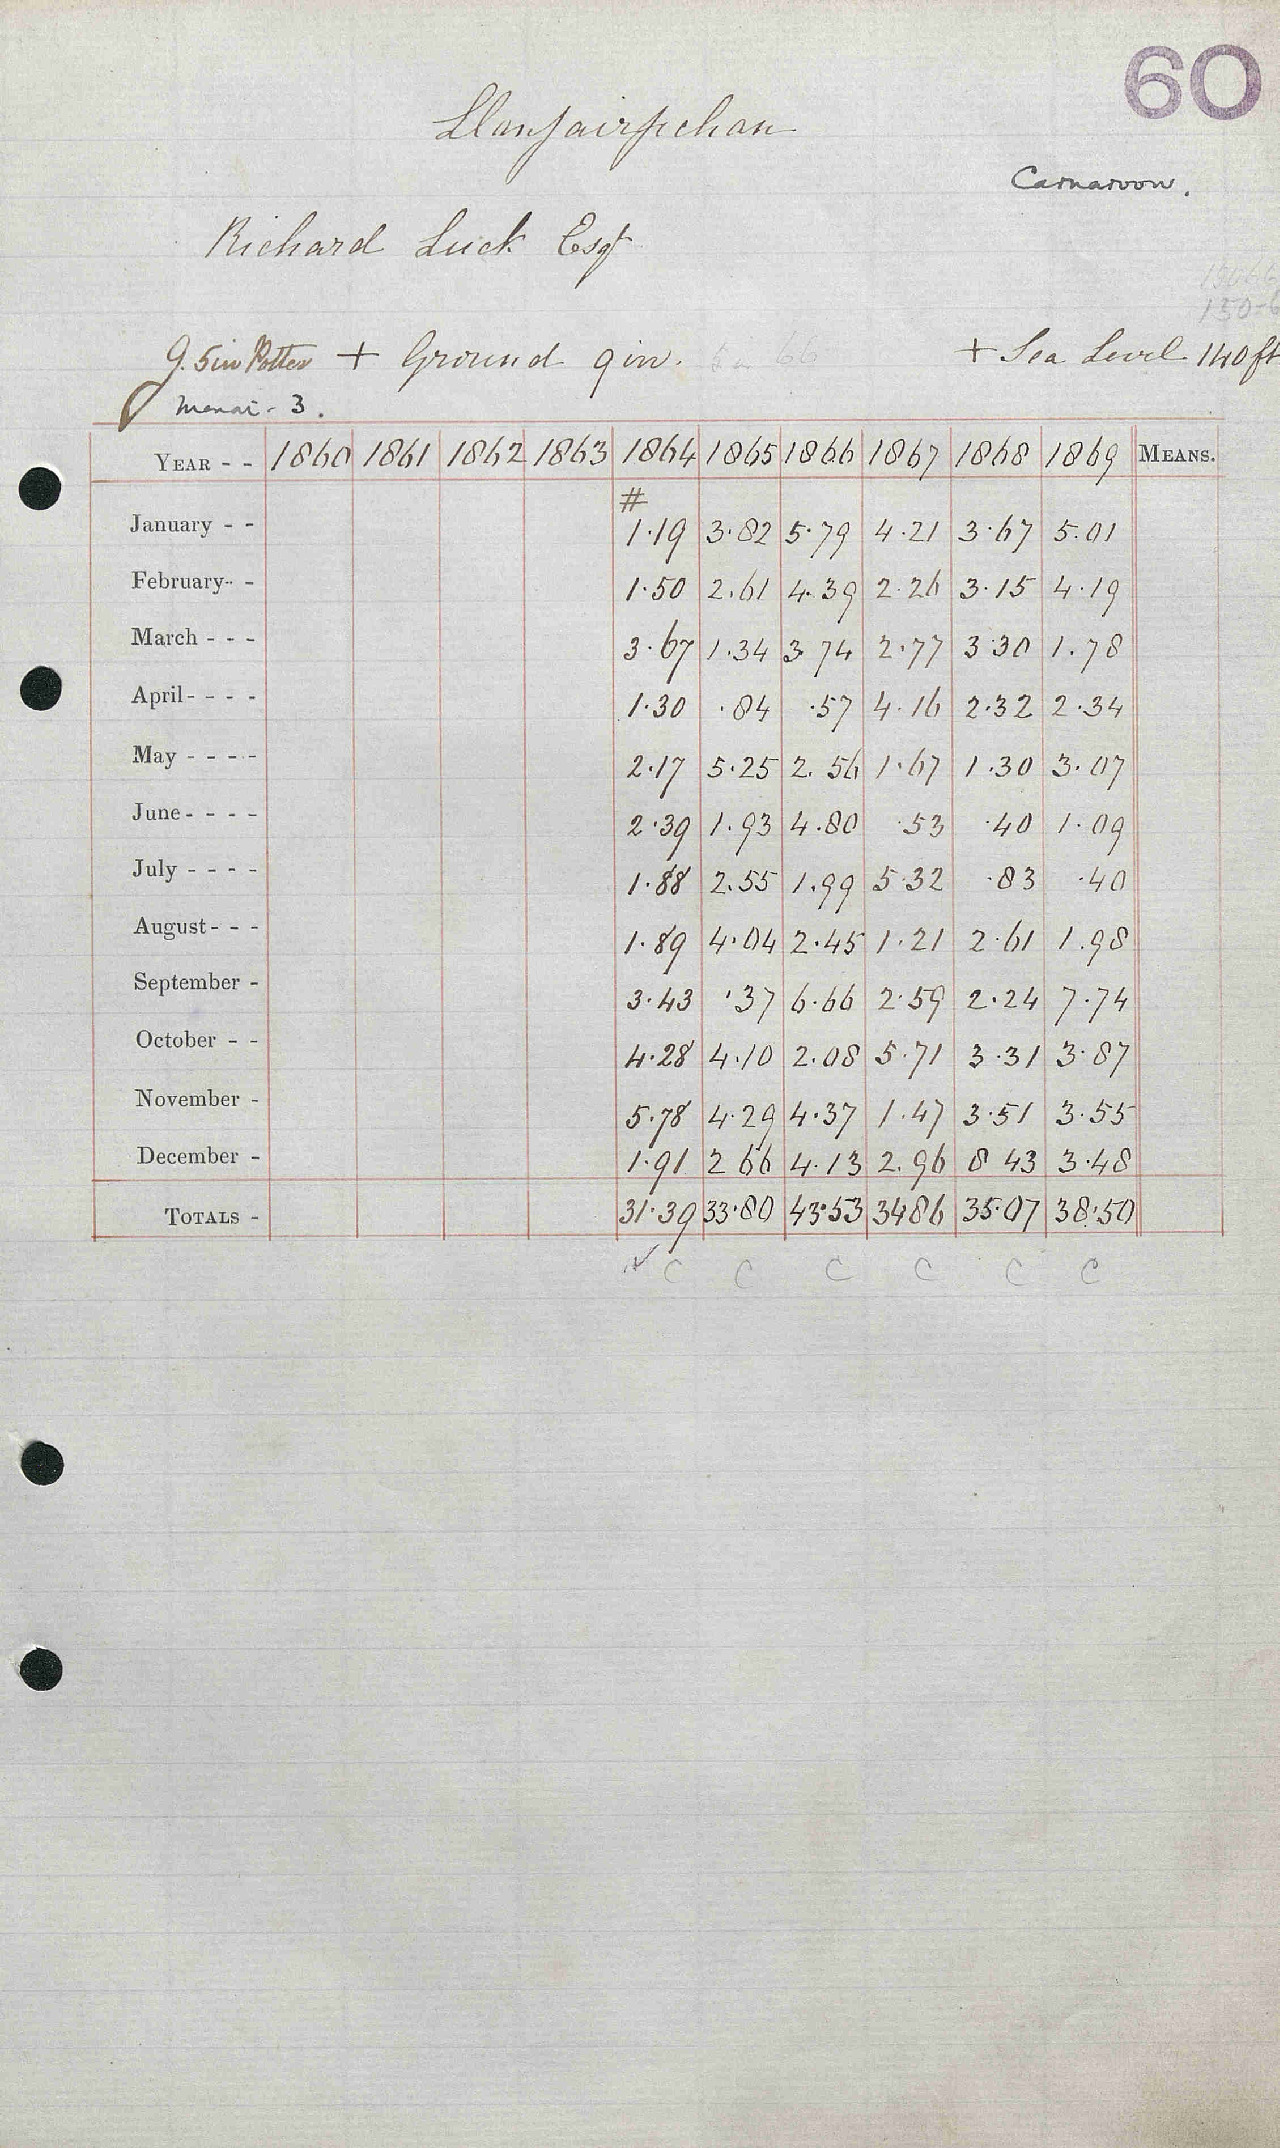 60
Llanfairfechan
Carnarvon.
Richard Luck Esqr
G. 5in Potter + Ground 9 in. + Sea Level 140 ft
Menai - 3.
YEAR - - 1860 1861 1862 1863 1864 1865 1866 1867 1868 1869 MEANS.
#
January - - 1.19 3.82 5.79 4.21 3.67 5.01
February - - 1.50 2.61 4.39 2.26 3.15 4.19
March - - - 3.67 1.34 3 74 2.77 3 30 1.78
April - - - - 1.30 .84 .57 4.16 2.32 2.34
May - - - - 2.17 5.25 2.56 1.67 1.30 3.07
June - - - - 2.39 1.93 4.80 .53 .40 1.09
July - - - - 1.88 2.55 1.99 5.32 .83 .40
August - - - 1.89 4.04 2.45 1.21 2.61 1.98
September - 3.43 .37 6.66 2.59 2.24 7.74
October - - 4.28 4.10 2.08 5.71 3.31 3.87
November - 5.78 4.29 4.37 1.47 3.51 3.55
December - 1.91 2 66 4.13 2.96 8 43 3.48
TOTALS - 31.39 33.80 43.53 3486 35.07 38.50
✓ C C C C C C